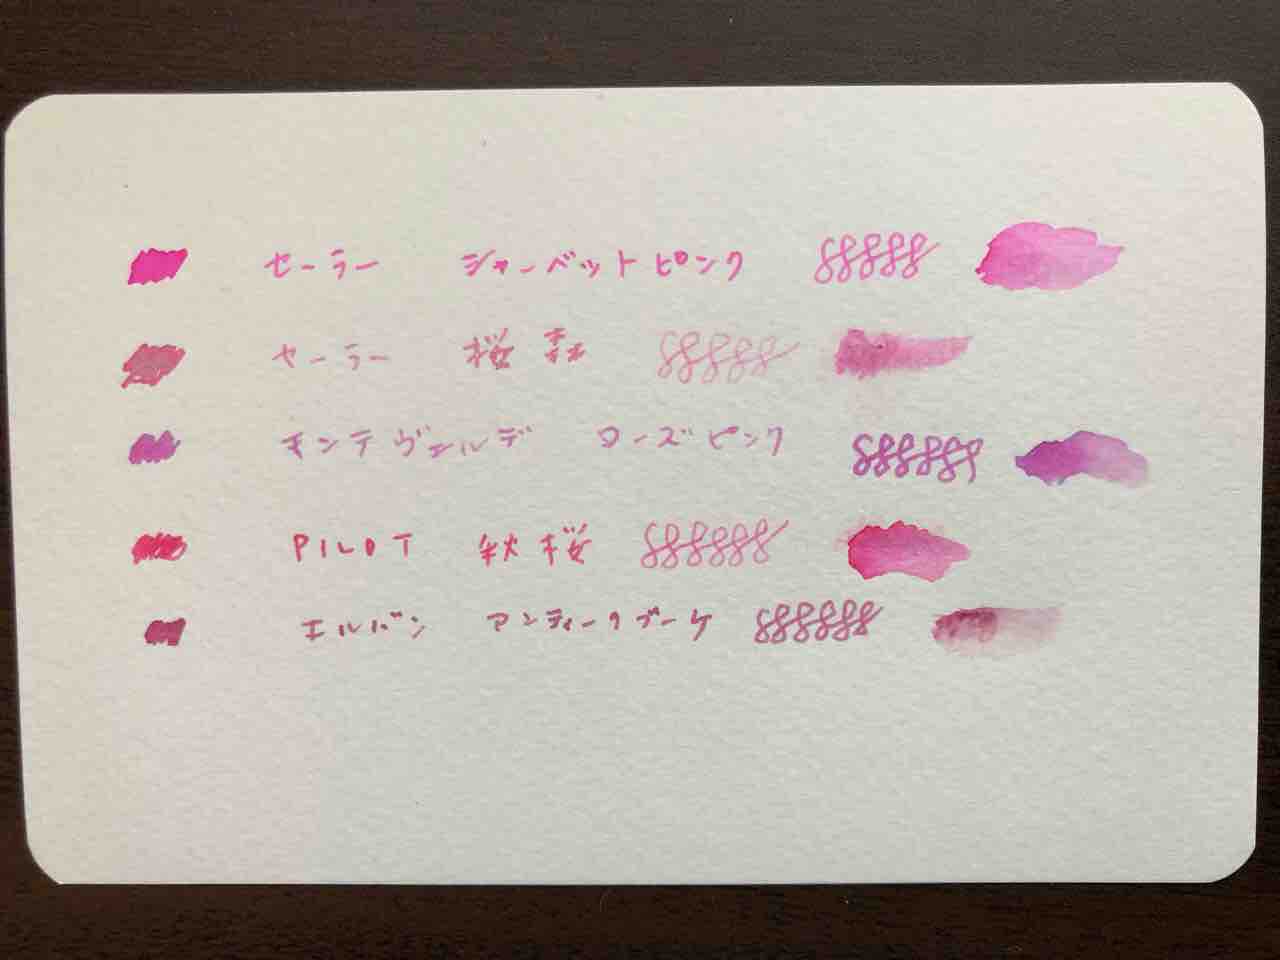 セーラー シャーベットピンク
セーラー 桜森
モンテヴェルデ ローズピンク
PILOT 秋桜
エルバン アンティークブーケ